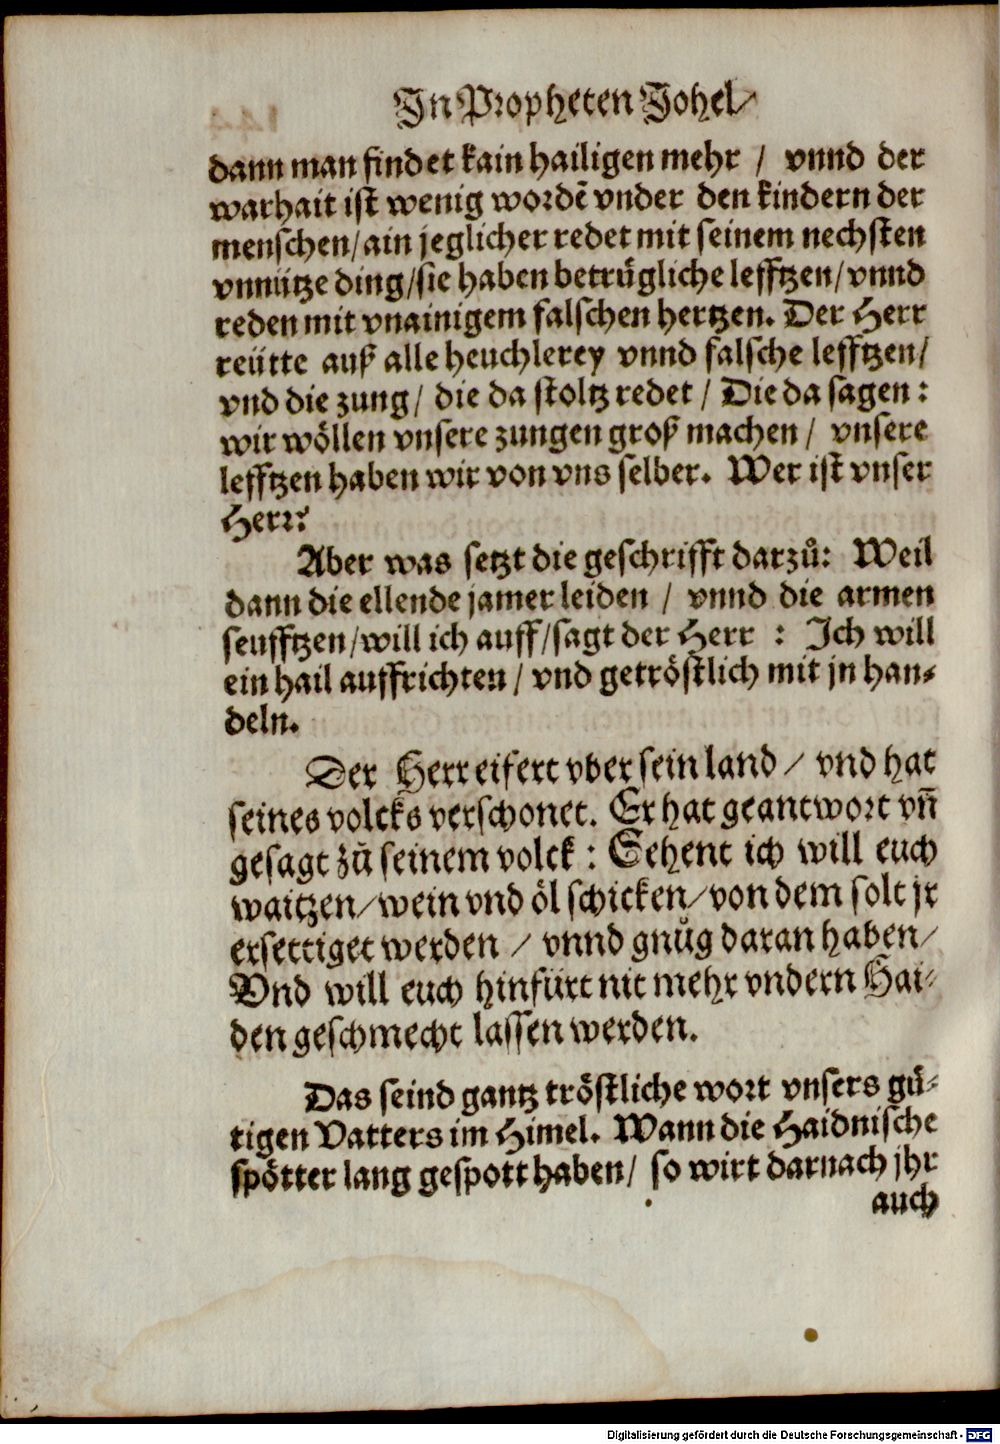 In Propheten Johel/
dann man findet kain hailigen mehr / vnnd der
warhait ist wenig wordẽ vnder den kindern der
menschen/ ain jeglicher redet mit seinem nechsten
vnnütze ding/ sie haben betrügliche lefftzen/ vnnd
reden mit vnainigem falschen hertzen. Der Herr
reütte auß alle heuchlerey vnnd falsche lefftzen/
vnd die zung/ die da stoltz redet / Die da sagen:
wir wöllen vnsere zungen groß machen / vnsere
lefftzen haben wir von vns selber. Wer ist vnser
Herr?
Aber was setzt die geschrifft darzů: Weil
dann die ellende jamer leiden / vnnd die armen
seufftzen/ will ich auff/ sagt der Herr : Ich will
ein hail auffrichten / vnd getröstlich mit jn han⸗
deln.
Der Herr eifert vber sein land / vnd hat
seines volcks verschonet. Er hat geantwort vñ
gesagt zů seinem volck : Sehent ich will euch
waitzen/ wein vnd öl schicken/ von dem solt jr
ersettiget werden / vnnd gnůg daran haben/
Vnd will euch hinfürt nit mehr vndern Hai⸗
den geschmecht lassen werden.
Das seind gantz tröstliche wort vnsers gü⸗
tigen Vatters im Himel. Wann die Haidnische
spötter lang gespott haben/ so wirt darnach jhr
auch
Digitalisierung gefördert durch die Deutsche Forschungsgemeinschaft - DFG